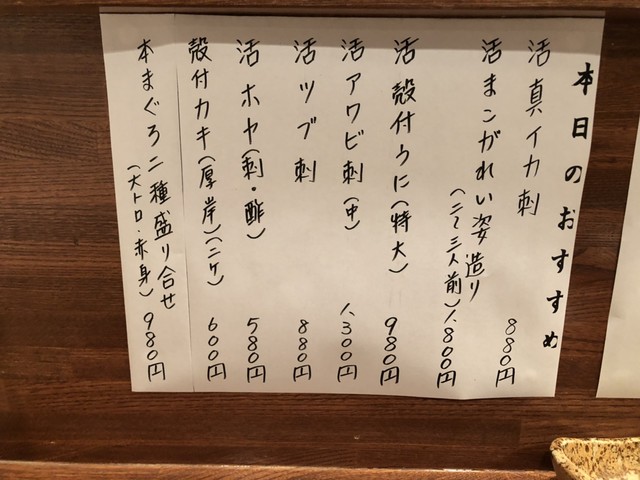 本日のおすすめ
活真イカ刺 880円
活まこがれい姿造り
(二〜三人前) 1.800円
活殻付うに(特大) 980円
活アワビ刺(中) 1.300円
活ツブ刺 880円
活ホヤ(刺・酢) 580円
殻付カキ(厚岸)(二ケ) 600円
本まぐろ二種盛り合せ
(大トロ・赤身) 980円